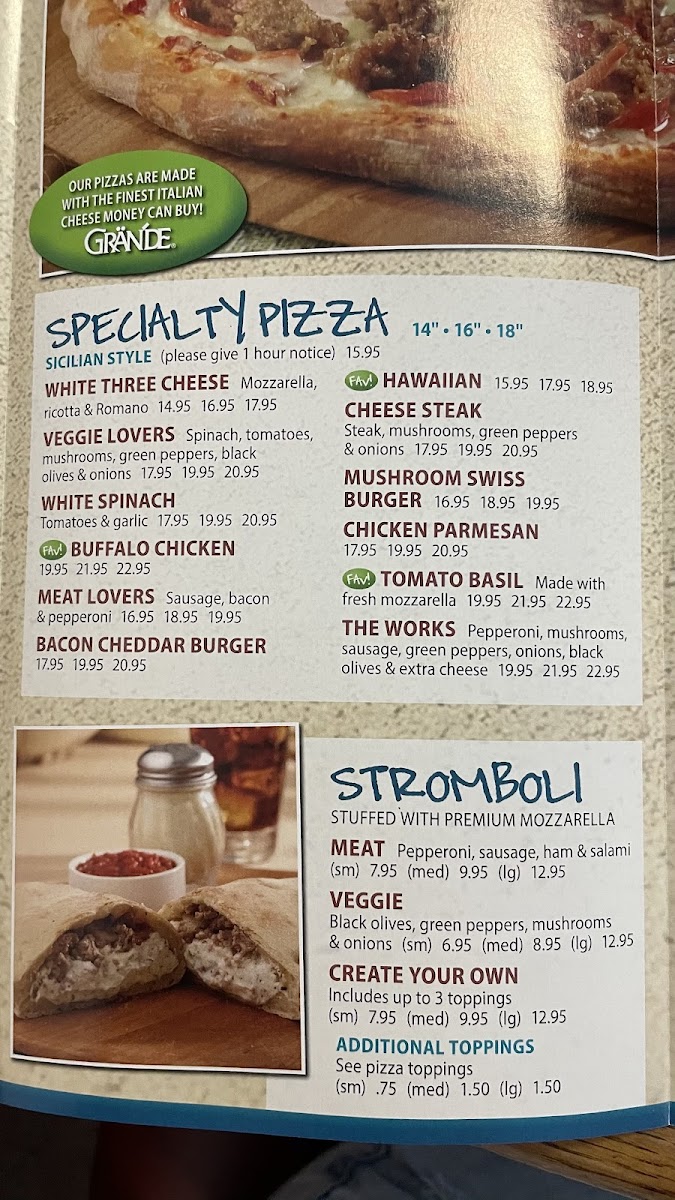 OUR PIZZAS ARE MADE
WITH THE FINEST ITALIAN
CHEESE MONEY CAN BUY!
GRÄNDE®
SPECIALTY PIZZA 14" • 16" • 18"
SICILIAN STYLE (please give 1 hour notice) 15.95
WHITE THREE CHEESE Mozzarella,
ricotta & Romano 14.95 16.95 17.95
VEGGIE LOVERS Spinach, tomatoes,
mushrooms, green peppers, black
olives & onions 17.95 19.95 20.95
WHITE SPINACH
Tomatoes & garlic 17.95 19.95 20.95
FAV! BUFFALO CHICKEN
19.95 21.95 22.95
MEAT LOVERS Sausage, bacon
& pepperoni 16.95 18.95 19.95
BACON CHEDDAR BURGER
17.95 19.95 20.95
FAV! HAWAIIAN 15.95 17.95 18.95
CHEESE STEAK
Steak, mushrooms, green peppers
& onions 17.95 19.95 20.95
MUSHROOM SWISS
BURGER 16.95 18.95 19.95
CHICKEN PARMESAN
17.95 19.95 20.95
FAV! TOMATO BASIL Made with
fresh mozzarella 19.95 21.95 22.95
THE WORKS Pepperoni, mushrooms,
sausage, green peppers, onions, black
olives & extra cheese 19.95 21.95 22.95
STROMBOLI
STUFFED WITH PREMIUM MOZZARELLA
MEAT Pepperoni, sausage, ham & salami
(sm) 7.95 (med) 9.95 (lg) 12.95
VEGGIE
Black olives, green peppers, mushrooms
& onions (sm) 6.95 (med) 8.95 (lg) 12.95
CREATE YOUR OWN
Includes up to 3 toppings
(sm) 7.95 (med) 9.95 (lg) 12.95
ADDITIONAL TOPPINGS
See pizza toppings
(sm) .75 (med) 1.50 (lg) 1.50